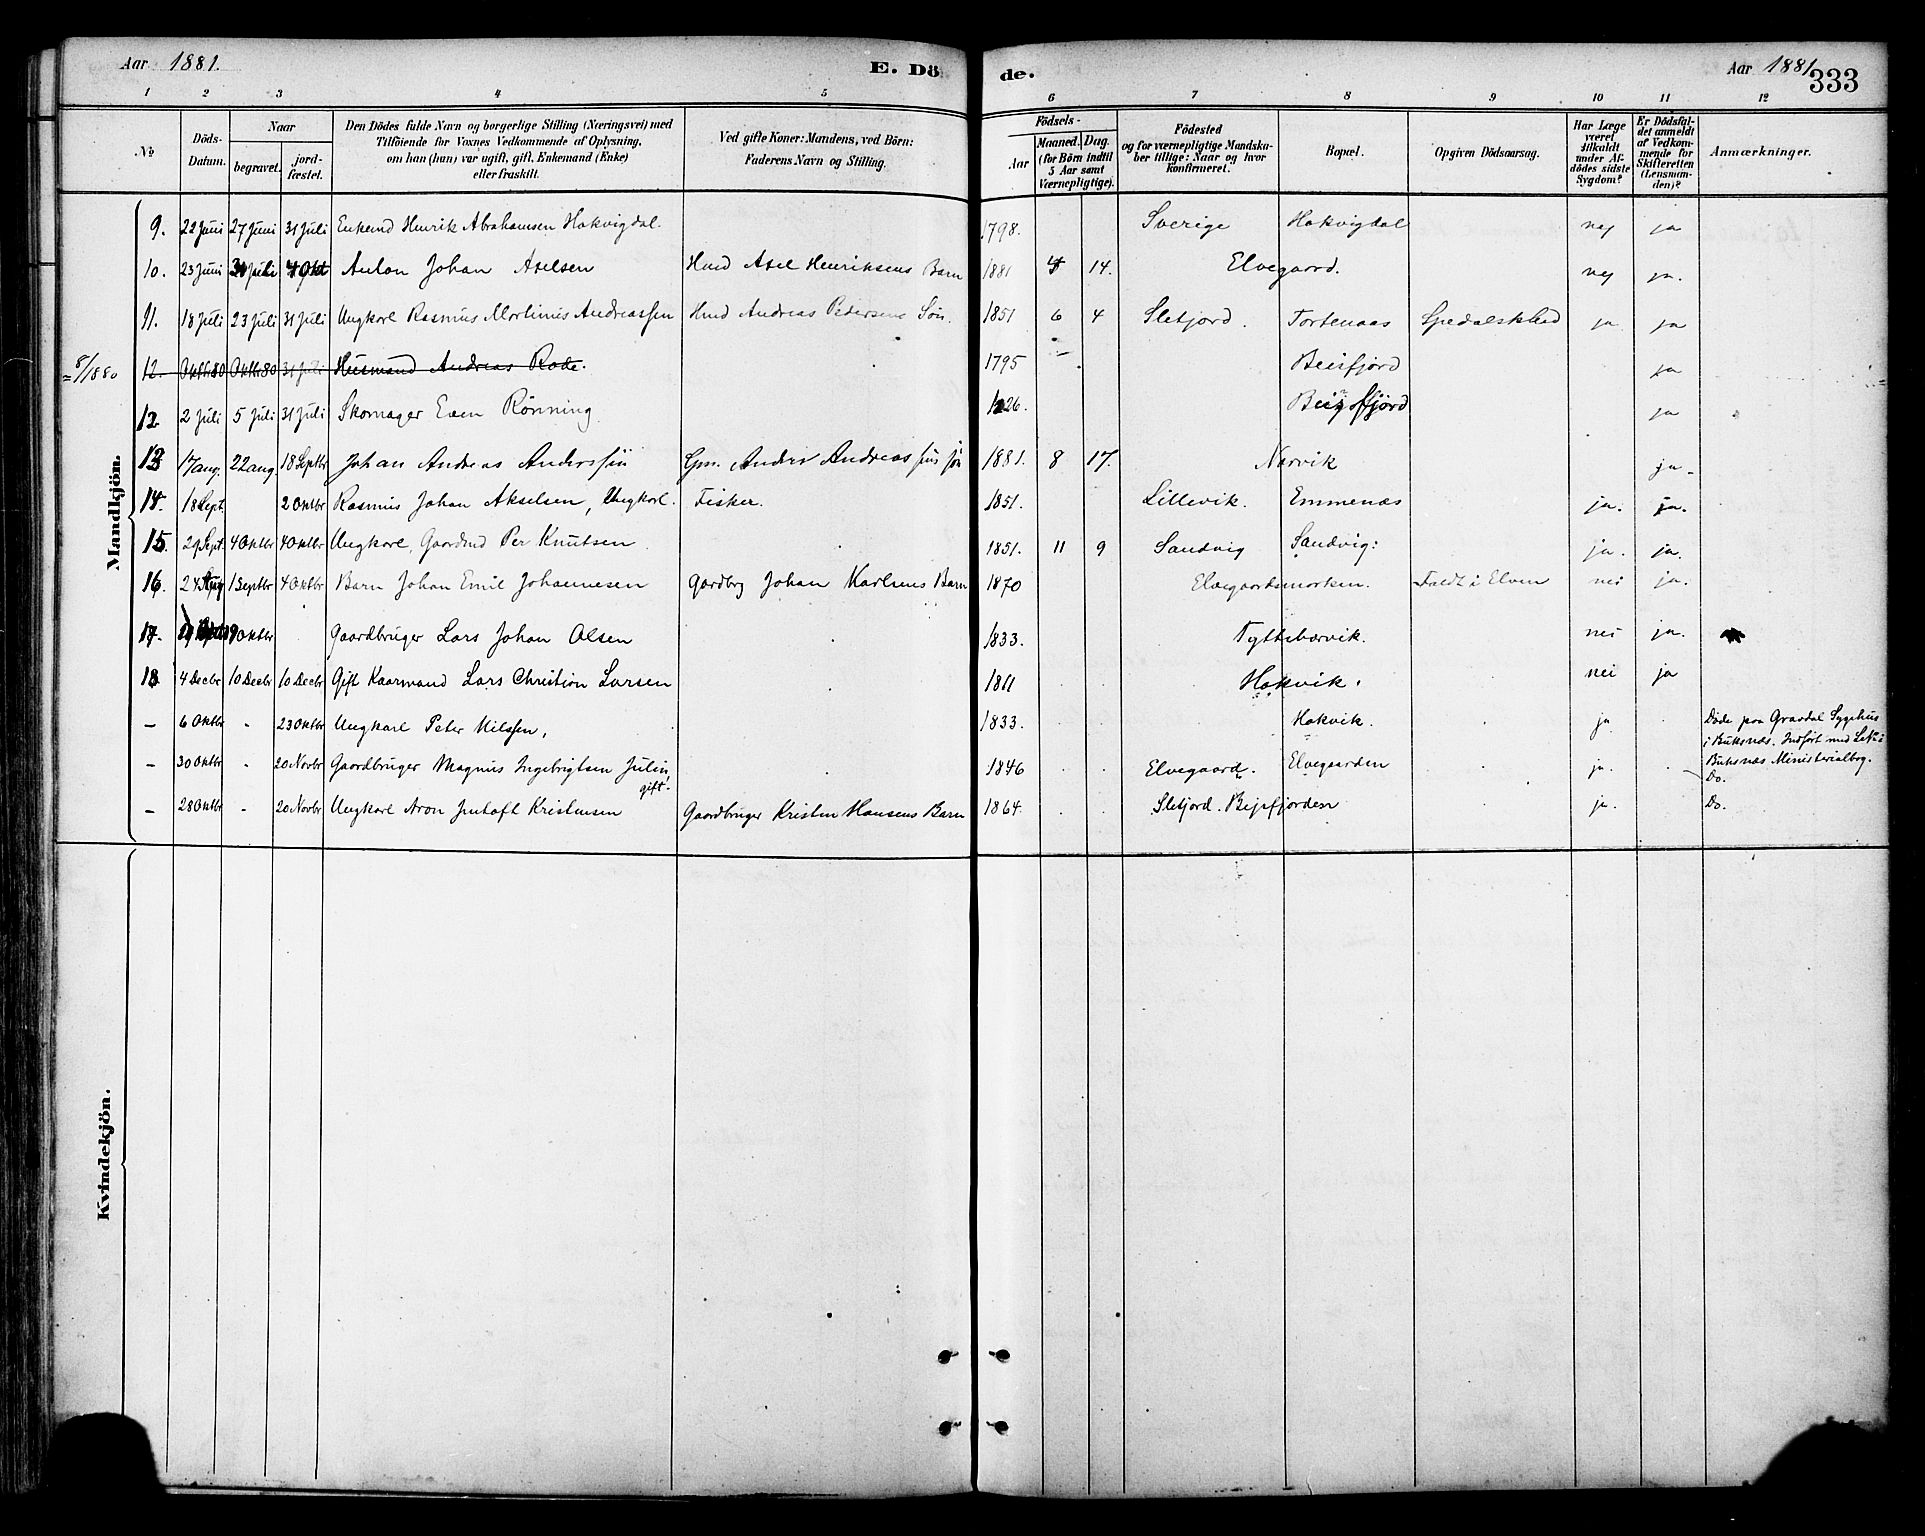 Aar 1881. E. Dö
de. Aar 1881 333
1 2 3 4 5 6 7 8 9 10 11 12
No
Döds-Datum.
Naar
begravet.
jord-fæstet.
Den Dödes fulde Navn og borgerlige Stilling (Næringsvei) med
Tilföiende for Voxnes Vedkommende af Oplysning,
om han (hun) var ugift, gift, Enkemand (Enke)
eller fraskilt.
Ved gifte Koner: Mandens, ved Börn:
Faderens Navn og Stilling.
Födsels-
Aar
Maaned. Dag.
(for Börn indtil
5 Aar samt
Værnepligtige).
Födested
og for værnepligtige Mandska-
ber tillige: Naar og hvor
konfirmeret.
Bopæl.
Opgiven Dödsaarsag.
Har Læge
været
tilkaldt
under Af-
dödes sidste
Sygdom?
Er Dödsfal-
det anmeldt
af Vedkom-
mende for
Skifteretten
(Lensman-
den)?
Anmærkninger.
Mandkjön.
9. 22 Juni 27 Juni 31 Juli Enkemd Henrik Abrahamsen Hakvigdal. 1798. Sverige Hakvigdal nej ja
10. 23 Juni 31 Juli 4 Okt Anton Johan Axelsen Hmd Axel Henriksens Barn 1881 4 14. Elvegaard. nej ja.
11. 18 Juli 23 Juli 31 Juli Ungkarl Rasmus Martinus Andreassen Hmd Andreas Pedersens Søn. 1851 6 4 Sletjord. Tortenaas Spedalskhed ja ja
= 8/1880 12. Oktbr 80 Oktbr 80 31 Juli Husmand Andreas Rode. 1795 Beisfjord ja
12 2 Juli 5 Juli 31 Juli Skomager Even Rönning 1826. Beisfjord ja
13 17 aug. 22 aug. 18 Septbr Johan Andreas Anderssøn Gm. Anders Andreassens søn 1881. 8 17. Narvik ja.
14. 18 Sept. 2 Oktbr Rasmus Johan Akselsen, Ungkarl. Fisker. 1851. Lillevik. Emmenæs ja. ja.
15. 29 Sept. 4 Oktbr 4 Oktbr Ungkarl, Gaardmd Per Knutsen 1851. 11 9 Sandvig Sandvig: ja. ja.
16. 24 Aug 1 Septbr 4 Oktbr Barn Johan Emil Johannesen Gardbrg Johan Karlsens Barn 1870 Elvegaardsmarken. Faldt i Elven nei ja.
17. 9 Oktbr Gaardbruger Lars Johan Olsen 1833. Tyttebærvik. nei ja.
18 4 Decbr 10 Decbr 10 Decbr Gift Kaarmand Lars Christian Larsen 1811 Hakvik. nei ja
– 6 Oktbr - 23 Oktbr Ungkarl Peter Nilssen, 1833. Hakvik. ja Døde paa Gravdal Sygehus
i Buksnæs. Indført med No i
Buksnæs Ministerialbog.
– 30 Oktbr - 20 Novbr Gaardbruger Magnus Ingebrigtsen Julin, gift. 1846 Elvegaard. Elvegaarden ja. Do.
– 28 Oktbr - 20 Novbr Ungkarl Aron Kristensen Gaardbruger Kristen Hansens Barn 1864. Sletjord. Bejsfjorden ja. Do.
Kvindekjön.